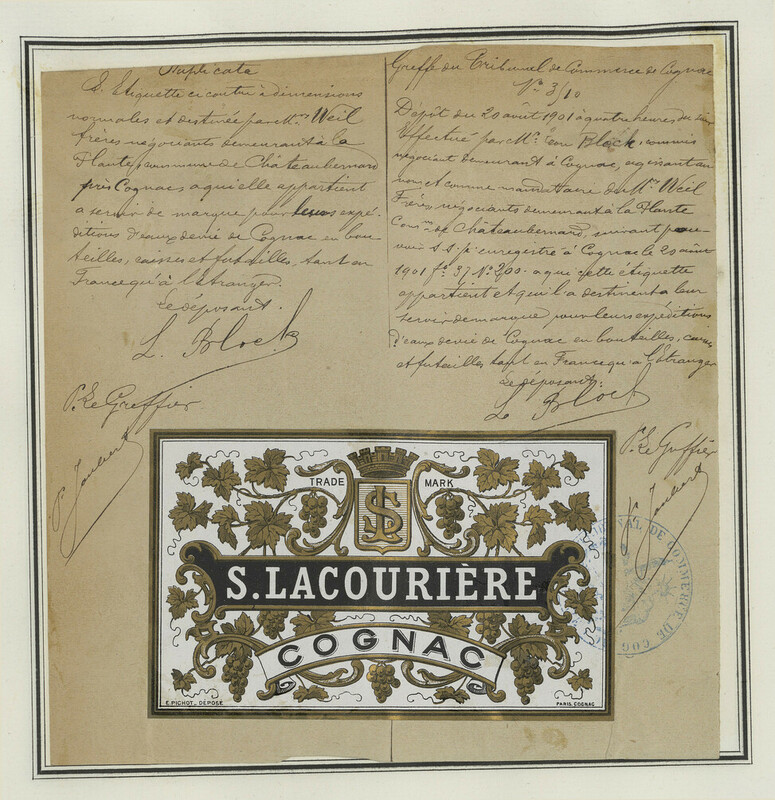 Duplicata
Etiquette ci contre à dimensions
normales et destinée par Mrs Weil
frères négociants demeurant à la
Plante, commune de Châteaubernard
près Cognac, à qui elle appartient
a servir de marque pour leurs expé-
ditions d'eaux de vie de Cognac en bou-
teilles, caisses et futailles, tant en
France qu'à l'étranger.
Le déposant.
L. Block
P. Le Greffier
P. Joubert
Greffe du Tribunal de Commerce de Cognac
No 3/10
Dépôt du 20 août 1901 à quatre heures du soir
effectué par Mr Léon Block commis
négociant demeurant à Cognac, agissant au
nom et comme mandataire de Mrs Weil
Frères négociants demeurant à la Plante
Comne de Châteaubernard, suivant pou-
voir s.s.p. enregistré à Cognac le 20 août
1901 fo 37 No 200. a que cette étiquette
appartient et qu'il a destinent a leur
servir de marque pour leurs expéditions
d'eaux de vie de Cognac en bouteilles, caisses
et futailles tant en France qu'à l'étranger
Le déposant:
L. Block
P. Le Greffier
P. Joubert
TRADE MARK
SL
S. LACOURIÈRE
COGNAC
E. PICHOT_DÉPOSÉ
PARIS. COGNAC
DE COMMERCE DE COG